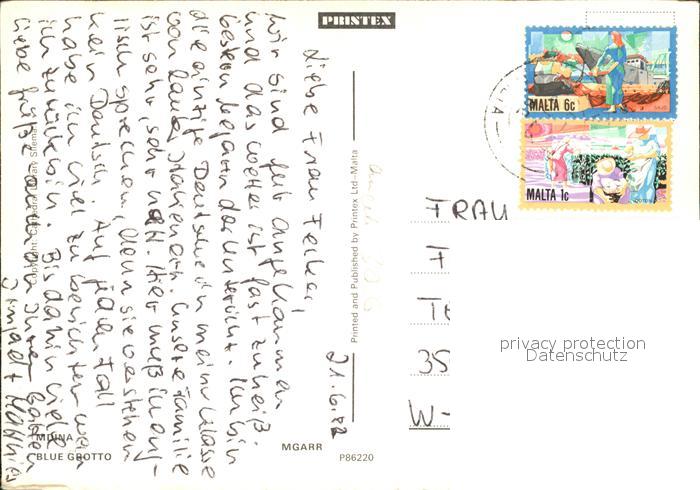 PRINTEX
Liebe Frau Felker,
wir sind gut angekommen
und das Wetter ist fast zu heiß.
Gestern begann der Unterricht. Ich bin
die einzige Deutsche in meiner Klasse
von lauter Italienern. Unsere Familie
ist sehr, sehr nett. Hier muß ich eng-
lisch sprechen, denn sie verstehen
kein Deutsch. Auf jeden Fall
habe ich viel zu berichten wenn
ich zurück bin. Bis dahin viele
liebe Grüße auch an Ihren
Irmgard + Matthias
21.6.82
Printed and Published by Printex Ltd–Malta
MDINA
BLUE GROTTO
MGARR
P86220
MALTA 6c
MALTA 1c
FRAU
F
TE
35
W-
privacy protection
Datenschutz